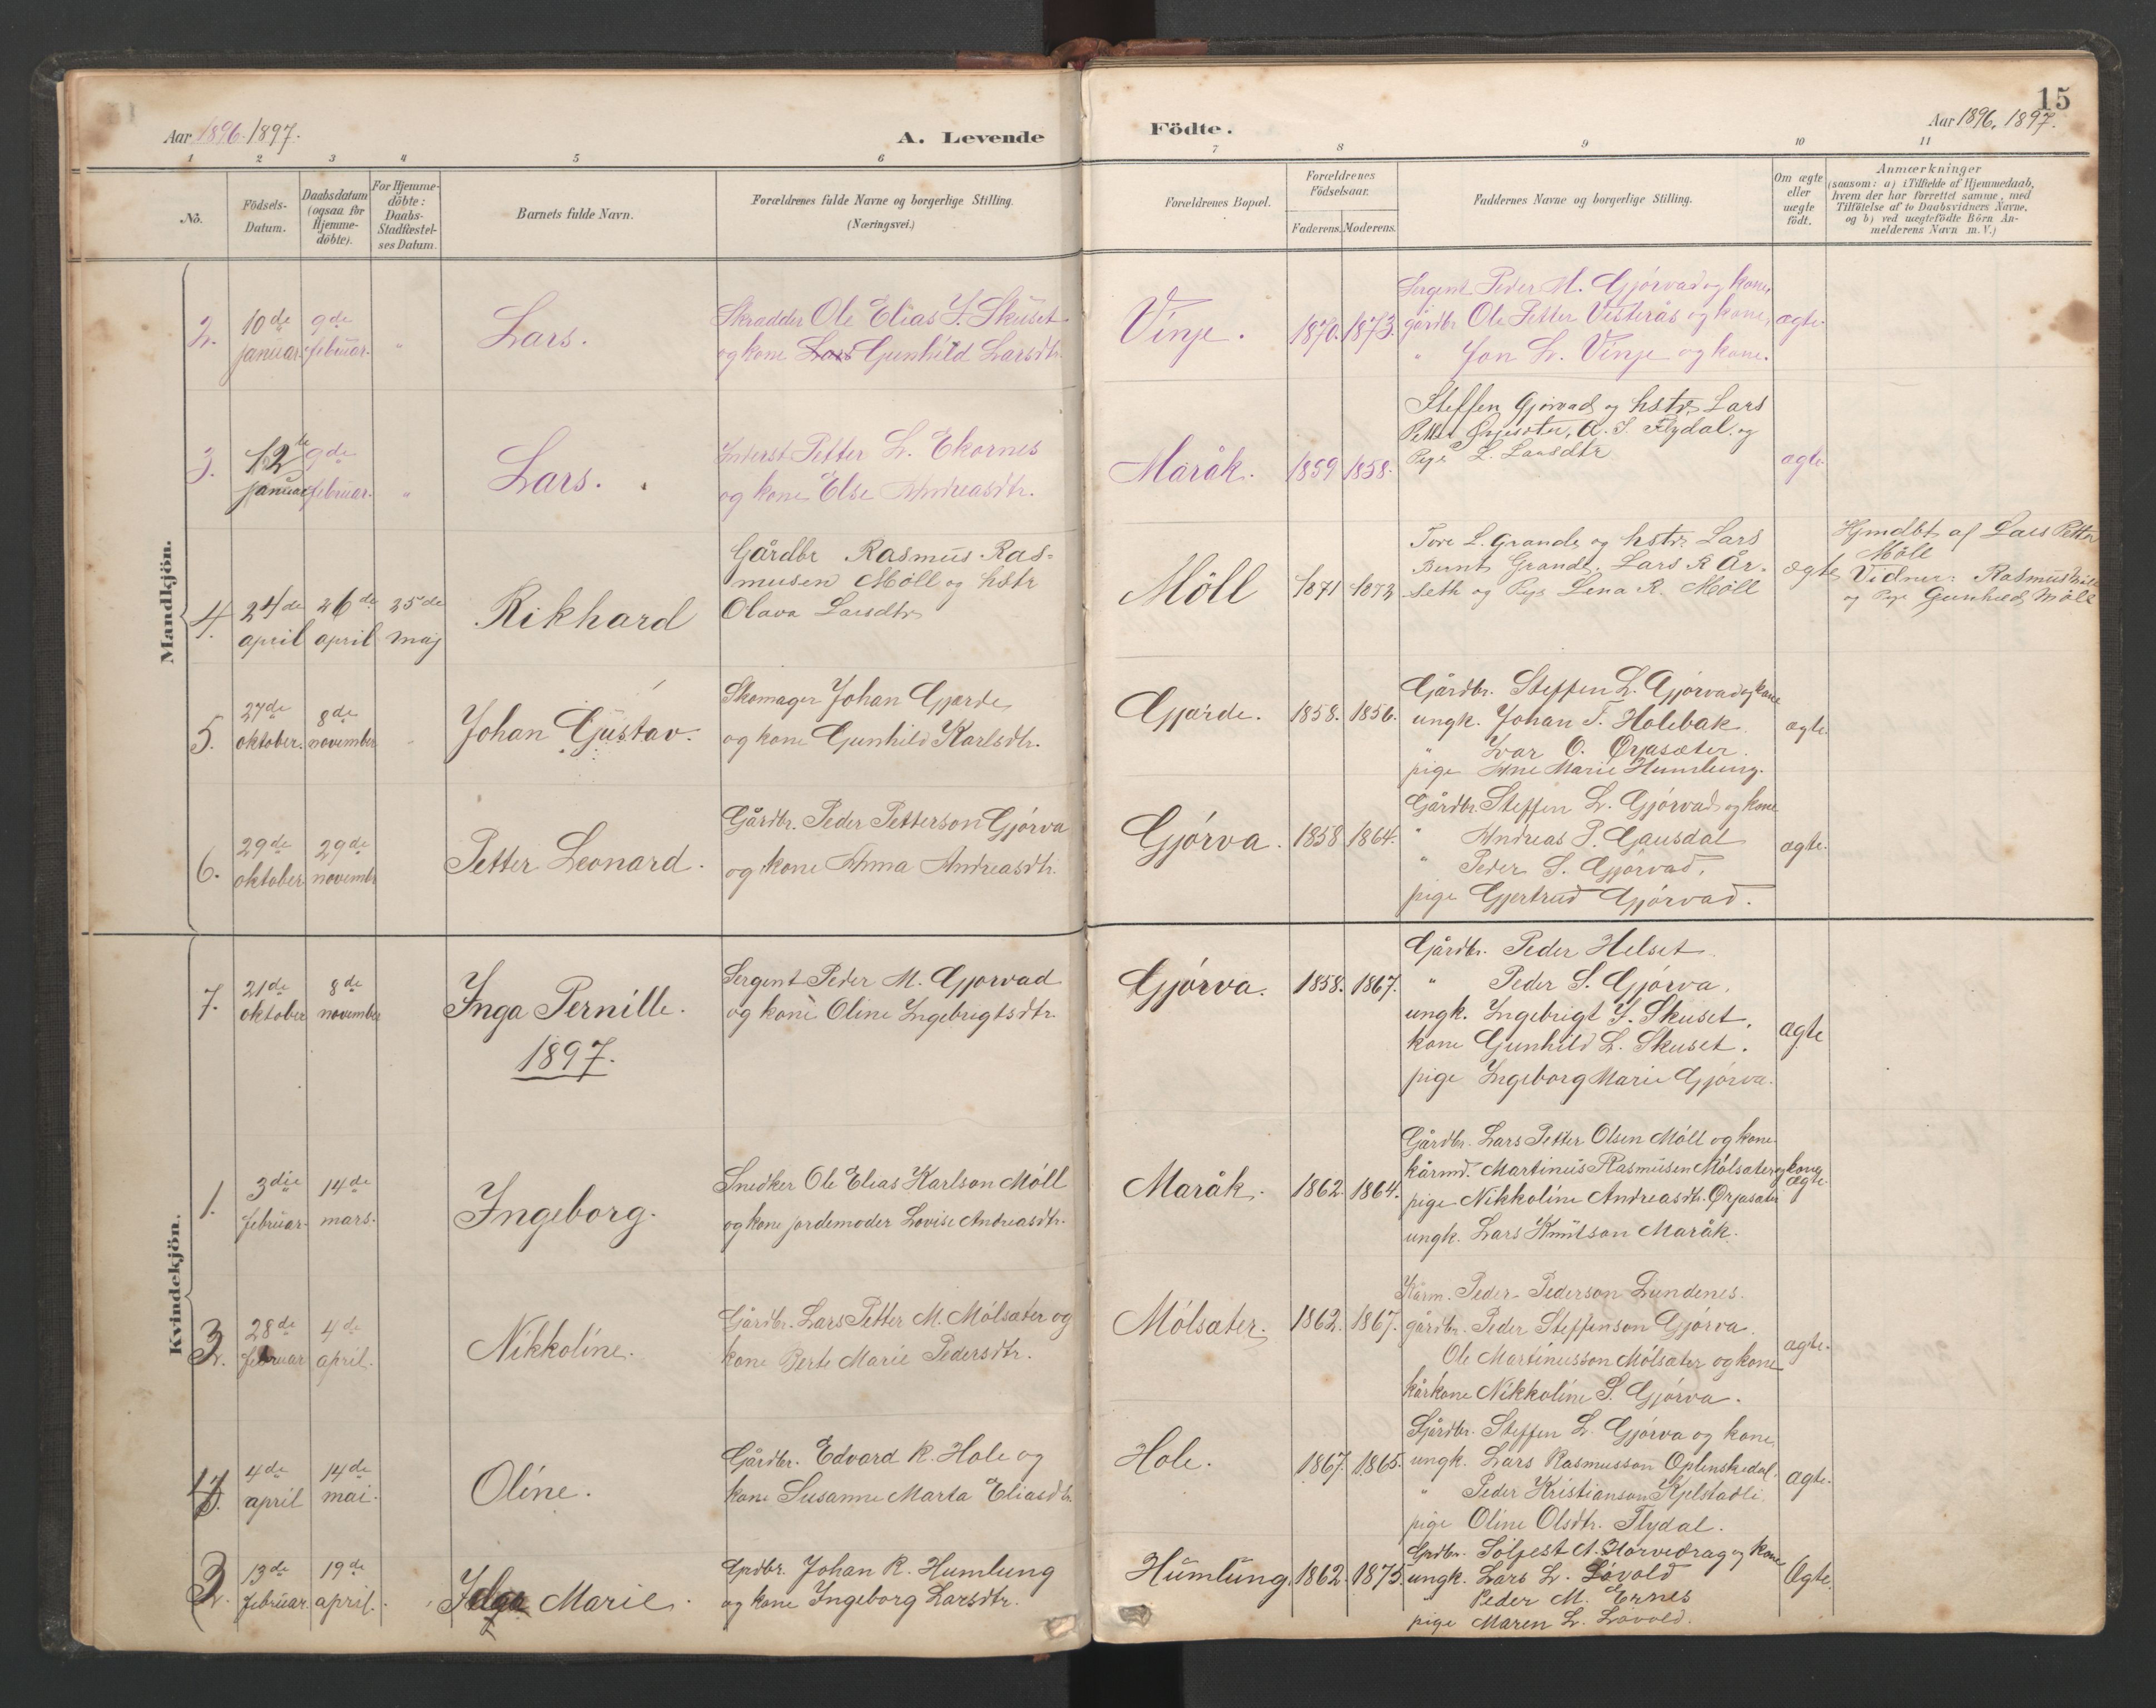 15
Aar 1896. 1897. A. Levende Födte. Aar 1896. 1897.
1 2 3 4 5 6 7 8 9 10 11
Nô.
Födsels-Datum.
Daabsdatum (ogsaa for Hjemme-döbte).
For Hjemme-döbte: Daabs-Stadfæstel-ses Datum.
Barnets fulde Navn.
Forældrenes fulde Navne og borgerlige Stilling. (Næringsvei.)
Forældrenes Bopæl.
Forældrenes Födselsaar. Faderens. Moderens.
Faddernes Navne og borgerlige Stilling.
Om ægte eller uægte födt.
Anmærkninger (saasom: a) i Tilfælde af Hjemmedaab, hvem der har forrettet samme, med Tilföielse af to Daabsvidners Navne, og b) ved uægtefödte Börn An-melderens Navn m. V.)
Mandkjön.
2. 10de januar. 9de februar. " Lars.
Skradder Ole Elias I. Skuset
og kone Lars Gunhild Larsdtr.
Vinje. 1870. 1873.
Sergent Peder M. Gjørvad og kone,
gårdbr Ole Petter Vesterås og kone,
" Jon L. Vinje og kone.
ægte.
3. 12te januar 9de februar. " Lars.
Inderst Petter L. Ekornes
og kone Else Andreasdtr.
Maråk. 1859 1858.
Steffen Gjørvad og hstr. Lars
Petter Ørjesæter, A. I. Flydal. og
Pige L. Larsdtr
ægte.
4. 24de april 26de april 25de maj Rikhard
Gårdbr Rasmus Ras-
musen Møll og hstr
Olava Larsdtr
Möll 1871 1873
Tore L. Grande og hstr. Lars
Bernt Grande. Lars R År-
seth og Pige Lena R. Møll
ægte
Hjmdbt af Lars Petter
Møll
Vidner: Rasmus
og Pige Gunhild Møll
5. 27de oktober. 8de november " Johan Gustav.
Skomager Johan Gjærde
og kone Gunhild Karlsdtr.
Gjærde. 1858. 1856.
Gårdbr. Steffen L. Gjørvad og kone
ungk. Johan T. Holebak
" Ivar O. Ørjasæter.
pige Ane Marie Humlung.
ægte.
6. 29de oktober. 29de novembr Petter Leonard.
Gårdbr. Peder Petterson Gjørva
og kone Anna Andreasdtr.
Gjørva. 1858 1864.
Gårdbr. Steffen L. Gjørvad og kone
" Andreas P. Gausdal
" Peder S. Gjørvad,
pige Gjertrud Gjørvad.
ægte.
Kvindekjön.
7. 21de oktober 8de november Inga Pernille.
Sergent Peder M. Gjørvad
og kone Oline Ingebrigtsdtr.
Gjørva. 1858. 1867.
Gårdbr. Peder Helset
" Peder S. Gjørva,
ungk. Ingebrigt I. Skuset,
kone Gunhild L. Skuset.
pige Ingeborg Marie Gjørva.
ægte
1897.
1. 3die februar. 14de mars. Ingeborg.
Snedker Ole Elias Karlson Møll
og kone jordemoder Lovise Andreasdtr.
Maråk. 1862. 1864.
Gårdbr. Lars Petter Olsen Møll og kone
kårmd. Martinus Rasmusen Mølsæter og kone
pige Nikkoline Andreasdtr. Ørjasæter
ungk. Lars Knutson Maråk.
ægte.
3. 28de februar 4de april. Nikkoline.
Gårdbr. Lars Petter M. Mølsæter og
kone Berte Marie Pedersdtr.
Mølsæter. 1862. 1867.
Kårm. Peder Pederson Lundenes.
gårdbr. Peder Steffenson Gjørva
Ole Martinusson Mølsæter og kone
kårkone Nikkoline S. Gjørva.
ægte.
4. 4de april 14de mai. Oline.
Gårdbr. Edvard R. Hole og
kone Susanne Marta Eliasdtr.
Hole. 1867. 1865.
Gårdbr. Steffen L. Gjørva og kone,
ungk. Lars Rasmusson Oplenskedal,
" Peder Kristianson Kjelstadli
pige Oline Olsdtr. Flydal.
ægte.
2. 13de februar. 19de april. Marie.
Grdbr. Johan R. Humlung
og kone Ingeborg Larsdtr.
Humlung. 1862. 1875.
Grdbr. Solfest A. Korvedrag og kone
ungk. Lars L. Løvold
" Peder M. Ernes
pige Maren L. Løvold.
Ægte.